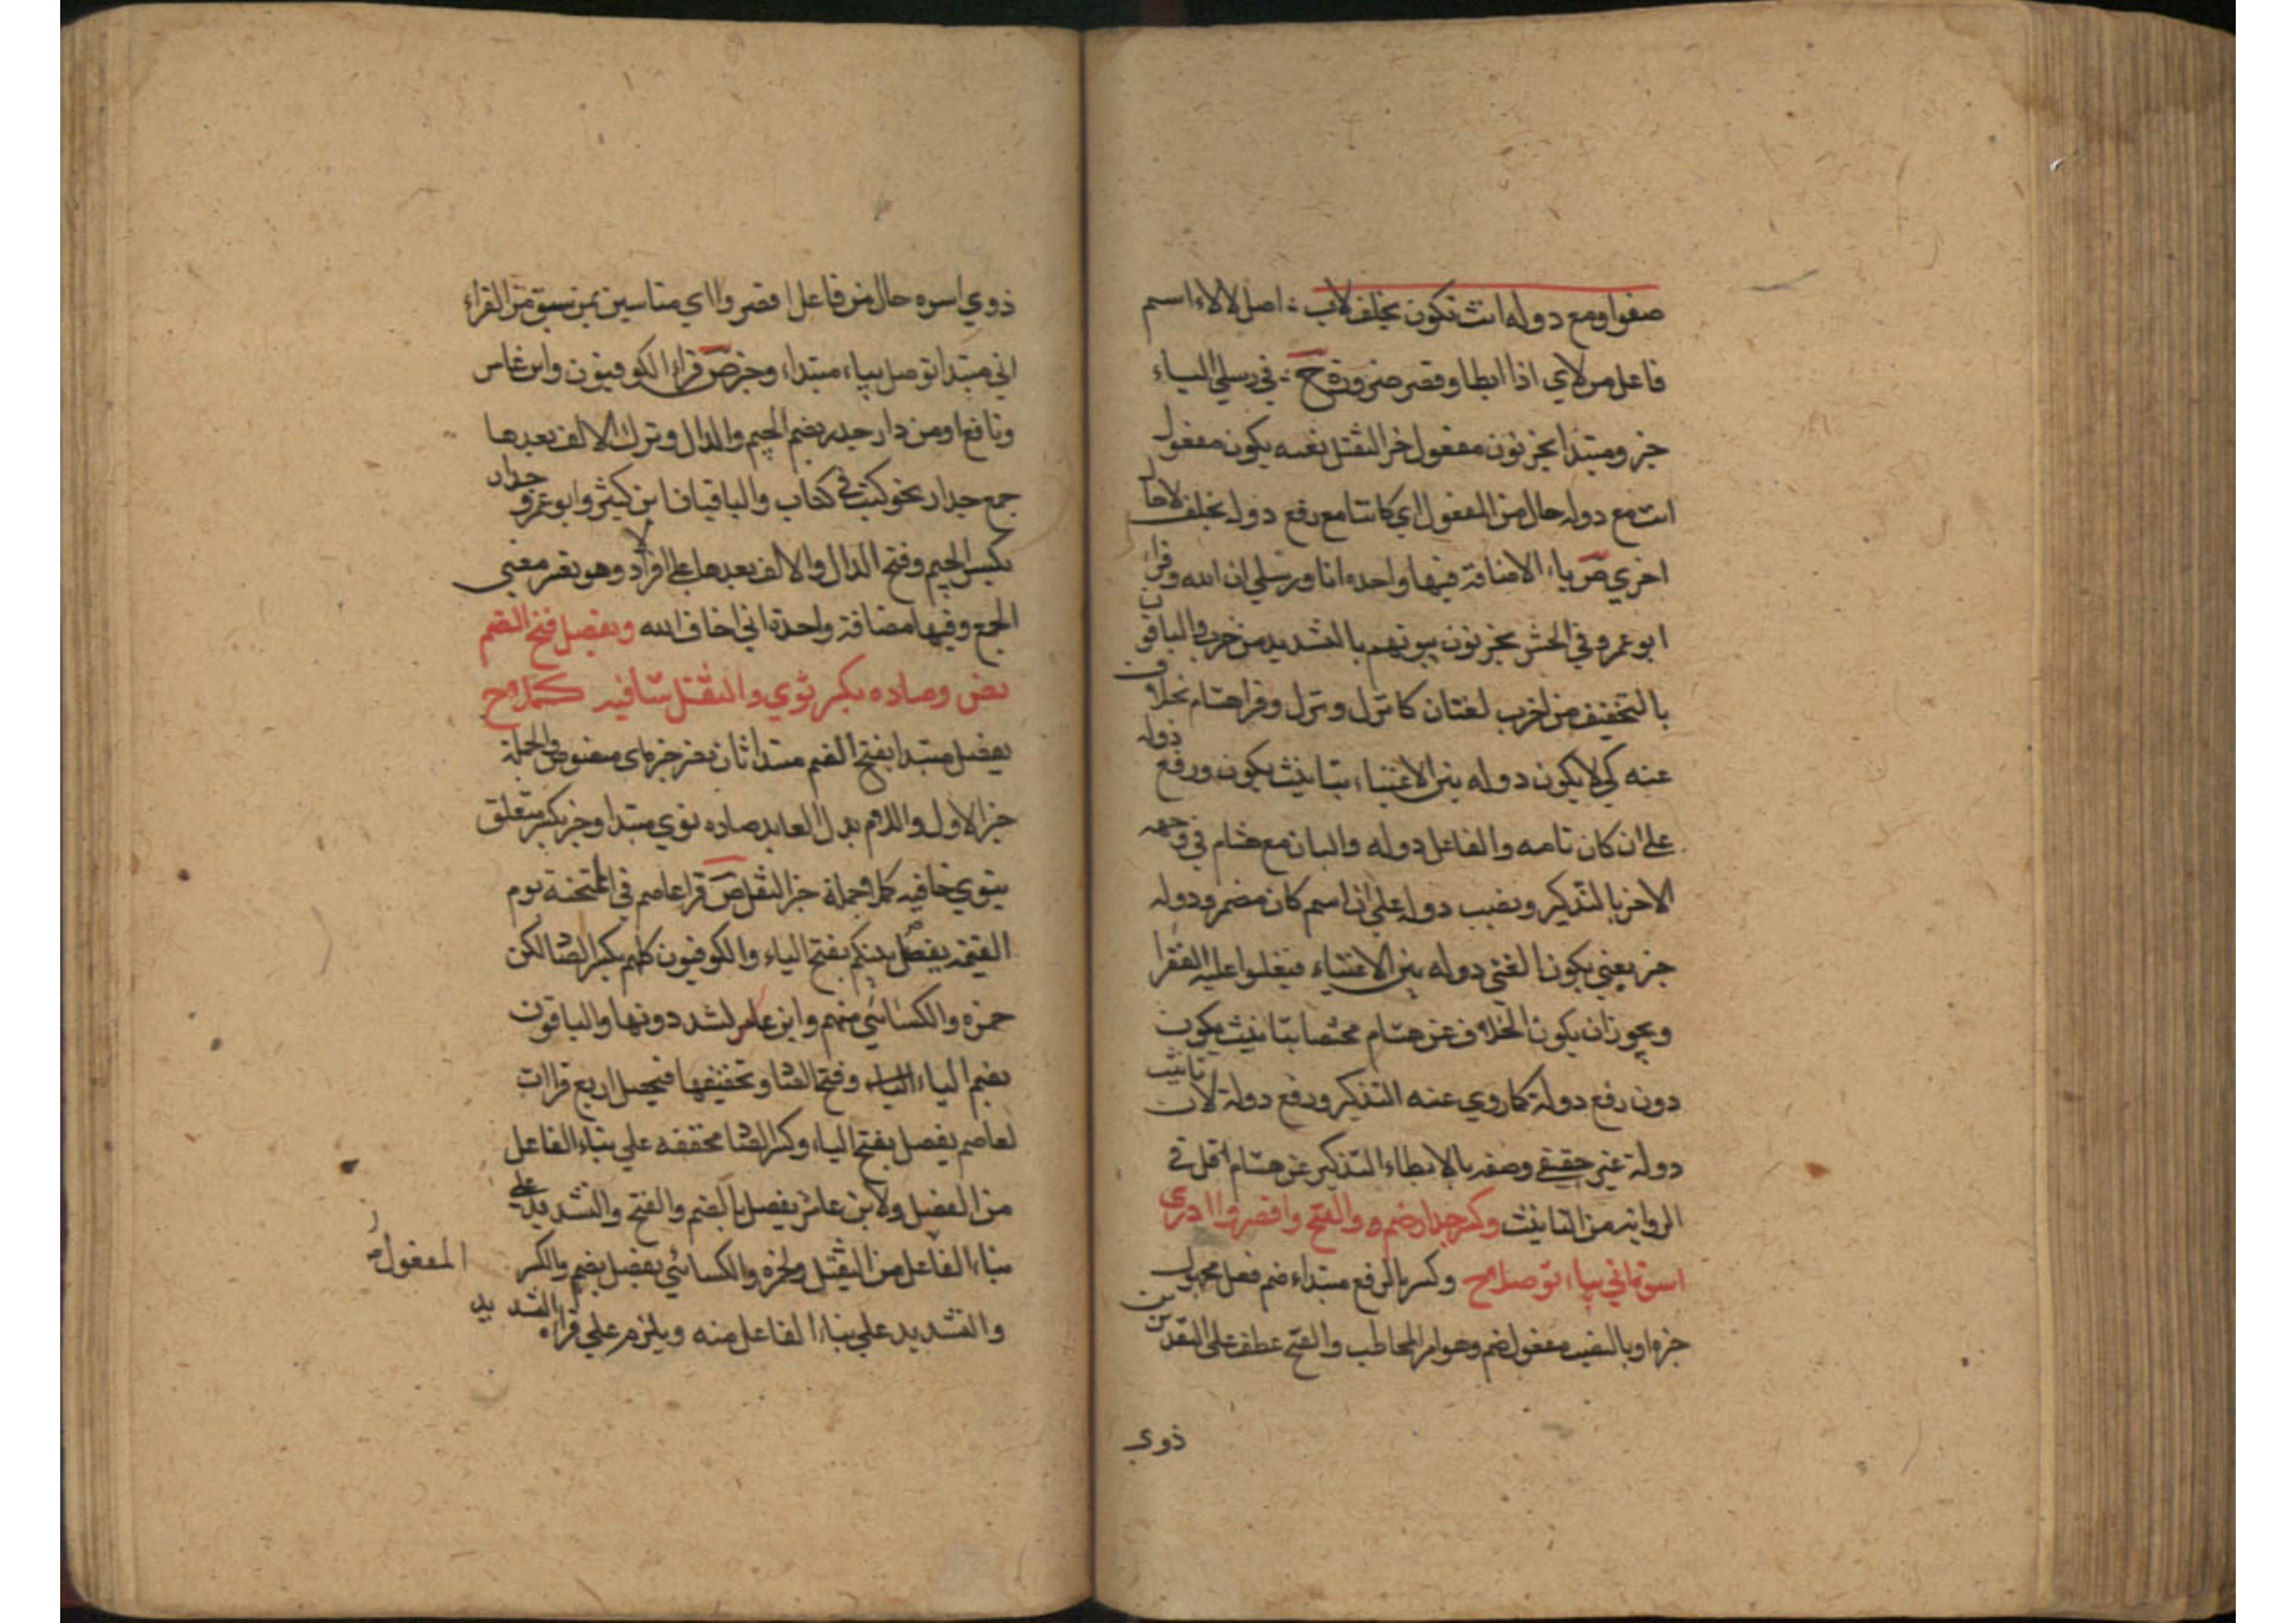 صفوا ومع دوله انث تكون بخلف لاب ∴ اصل لالاء اسم
فاعل من لاي اذا ابطا وقصر ضرورة ح ∴ في رسلي الياء
خبر ومبتدا يخربون مفعول اخر الثقل نفسه يكون مفعول
انث مع دوله حال من المفعول اي كائنا مع رفع دوله بخلف لا حال
اخري ص ياء الاضافة فيها واحدة انا ورسلي ان الله وقرا
ابو عمرو في الحشر يخربون بيوتهم بالتشديد من خرب والباقون
بالتخفيف من اخرب لغتان كانزل ونزل وقرا هشام بخلاف
عنه كي لا يكون دوله بين الاغنياء بتانيث يكون ورفع دوله
علي ان كان تامه والفاعل دوله والباقون مع هشام في وجهه
الاخر بالتذكير ونصب دوله علي ان اسم كان مضمر ودوله
خبر يعني يكون الفئ دوله بين الاغنياء فيغلبوا عليه الفقرا
ويجوز ان يكون الخلاف عن هشام مختصا بتانيث يكون
دون رفع دولة كما روي عنه التذكير ورفع دولة لان تانيث
دولة غير حقيقي وصفه بالابطاء التذكير عن هشام اقل في
الرواية من التانيث وكسر جدار ضم والفتح واقصروا ادري
اسوة اني بياء توصل امح وكسر بالرفع مبتداء ضم فعل مجهول
خبره او بالنصب مفعول ضم وهو امر المخاطب والفتح عطف علي التقديرين
ذوي
ذوي اسره حال من فاعل اقصروا اي متاسين بمن سبق من القراء
اني مبتدا توصل بياء مبتداء وخبر ص قراء الكوفيون وابن عامر
ونافع او من دار جدر بضم الجيم والدال وترك الالف بعدها
جمع جدار نحو كتب في كتاب والباقيان ابن كثير وابو عمرو جدار
بكسر الجيم وفتح الدال والالف بعدها علي الافراد وهو بقصر معني
الجمع وفيها مضافة واحدة اني اخاف الله ويفصل فتح الضم
نص وصاده بكسر ثوي والثقل شافيه كملا وح
يفصل مبتدا بفتح الضم مبتدا ثان نص خبره اي منصوص والجملة
خبر الاول واللام بدل العايد صاده ثوي مبتدا وخبر بكسر متعلق
بثوي شافيه كملا جملة خبر الثقل ص قرا عاصم في الممتحنة يوم
القيمة يفصل بينكم بفتح الياء والكوفيون كلهم بكسر الصاد لكن
حمزه والكسائي منهم وابن عامر لشددونها والباقون
بضم الياء الياء وفتح الصاد وتخفيفها فتحصل اربع قراات
لعاصم يفصل بفتح الياء وكسر الصاد مخففه علي بناء الفاعل
من الفصل ولابن عامر يفصل بالضم والفتح والتشديد علي
بناء الفاعل من التثقيل ولحمزه والكسائي يفصل بضم والكسر
المفعول صح
والتشديد علي بناء الفاعل منه ويلزم علي قراة التشديد